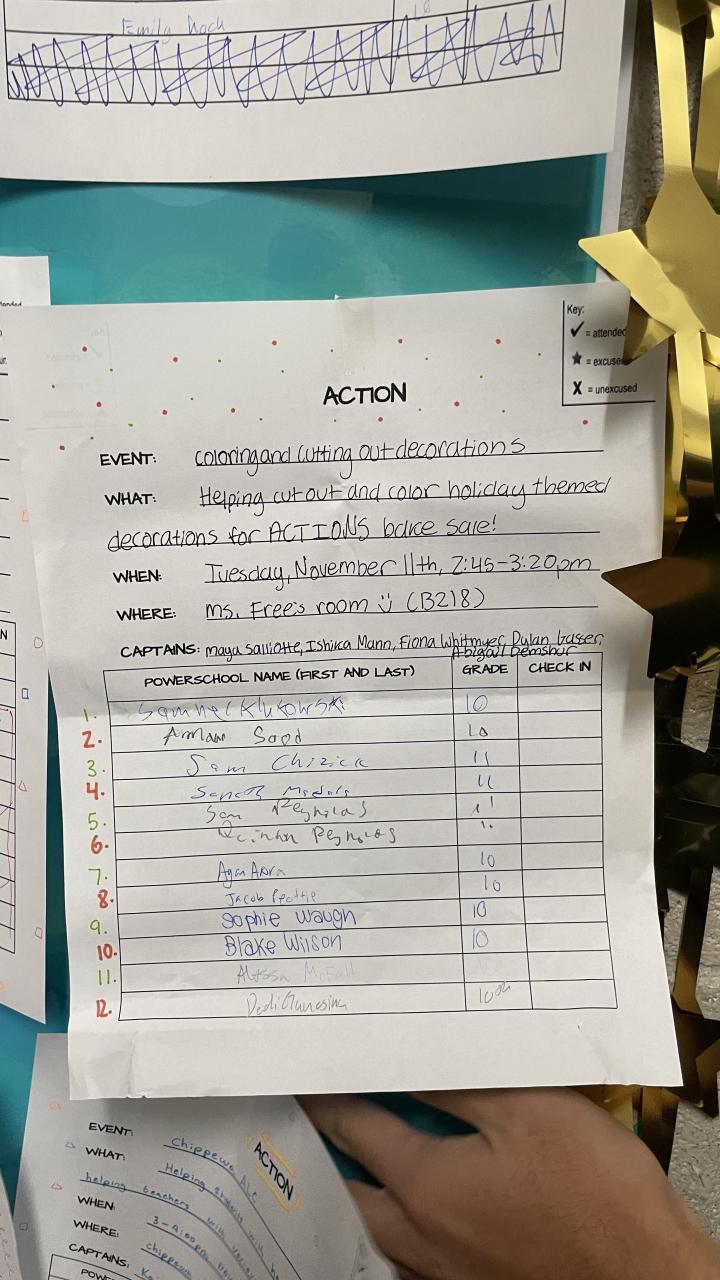 Emily
Key:
✓ = attended
★ = excused
X = unexcused
ACTION
EVENT: coloring and cutting out decorations
WHAT: Helping cut out and color holiday themed
decorations for ACTIONS bake sale!
WHEN: Tuesday, November 11th, 2:45-3:20pm
WHERE: ms. Free's room (B218)
CAPTAINS: maya Salliotte, Ishika Mann, Fiona Whitmyer, Dylan Gasser,
Abigail Demshur
POWERSCHOOL NAME (FIRST AND LAST) GRADE CHECK IN
1. Samuel Klukowski 10
2. Arman Sood 10
3. Sam Chizick 11
4. 11
5. Sam Reynolds 11
6. Quinton Reynolds 11
7. 10
8. Jacob 10
9. Sophie Waugh 10
10. Blake Wilson 10
11. Alyssa
12. 10th
EVENT: Chippewa
ACTION
WHAT: Helping students with
helping teachers with
WHEN:
WHERE: 3-4:00pm
CAPTAINS: chippewa